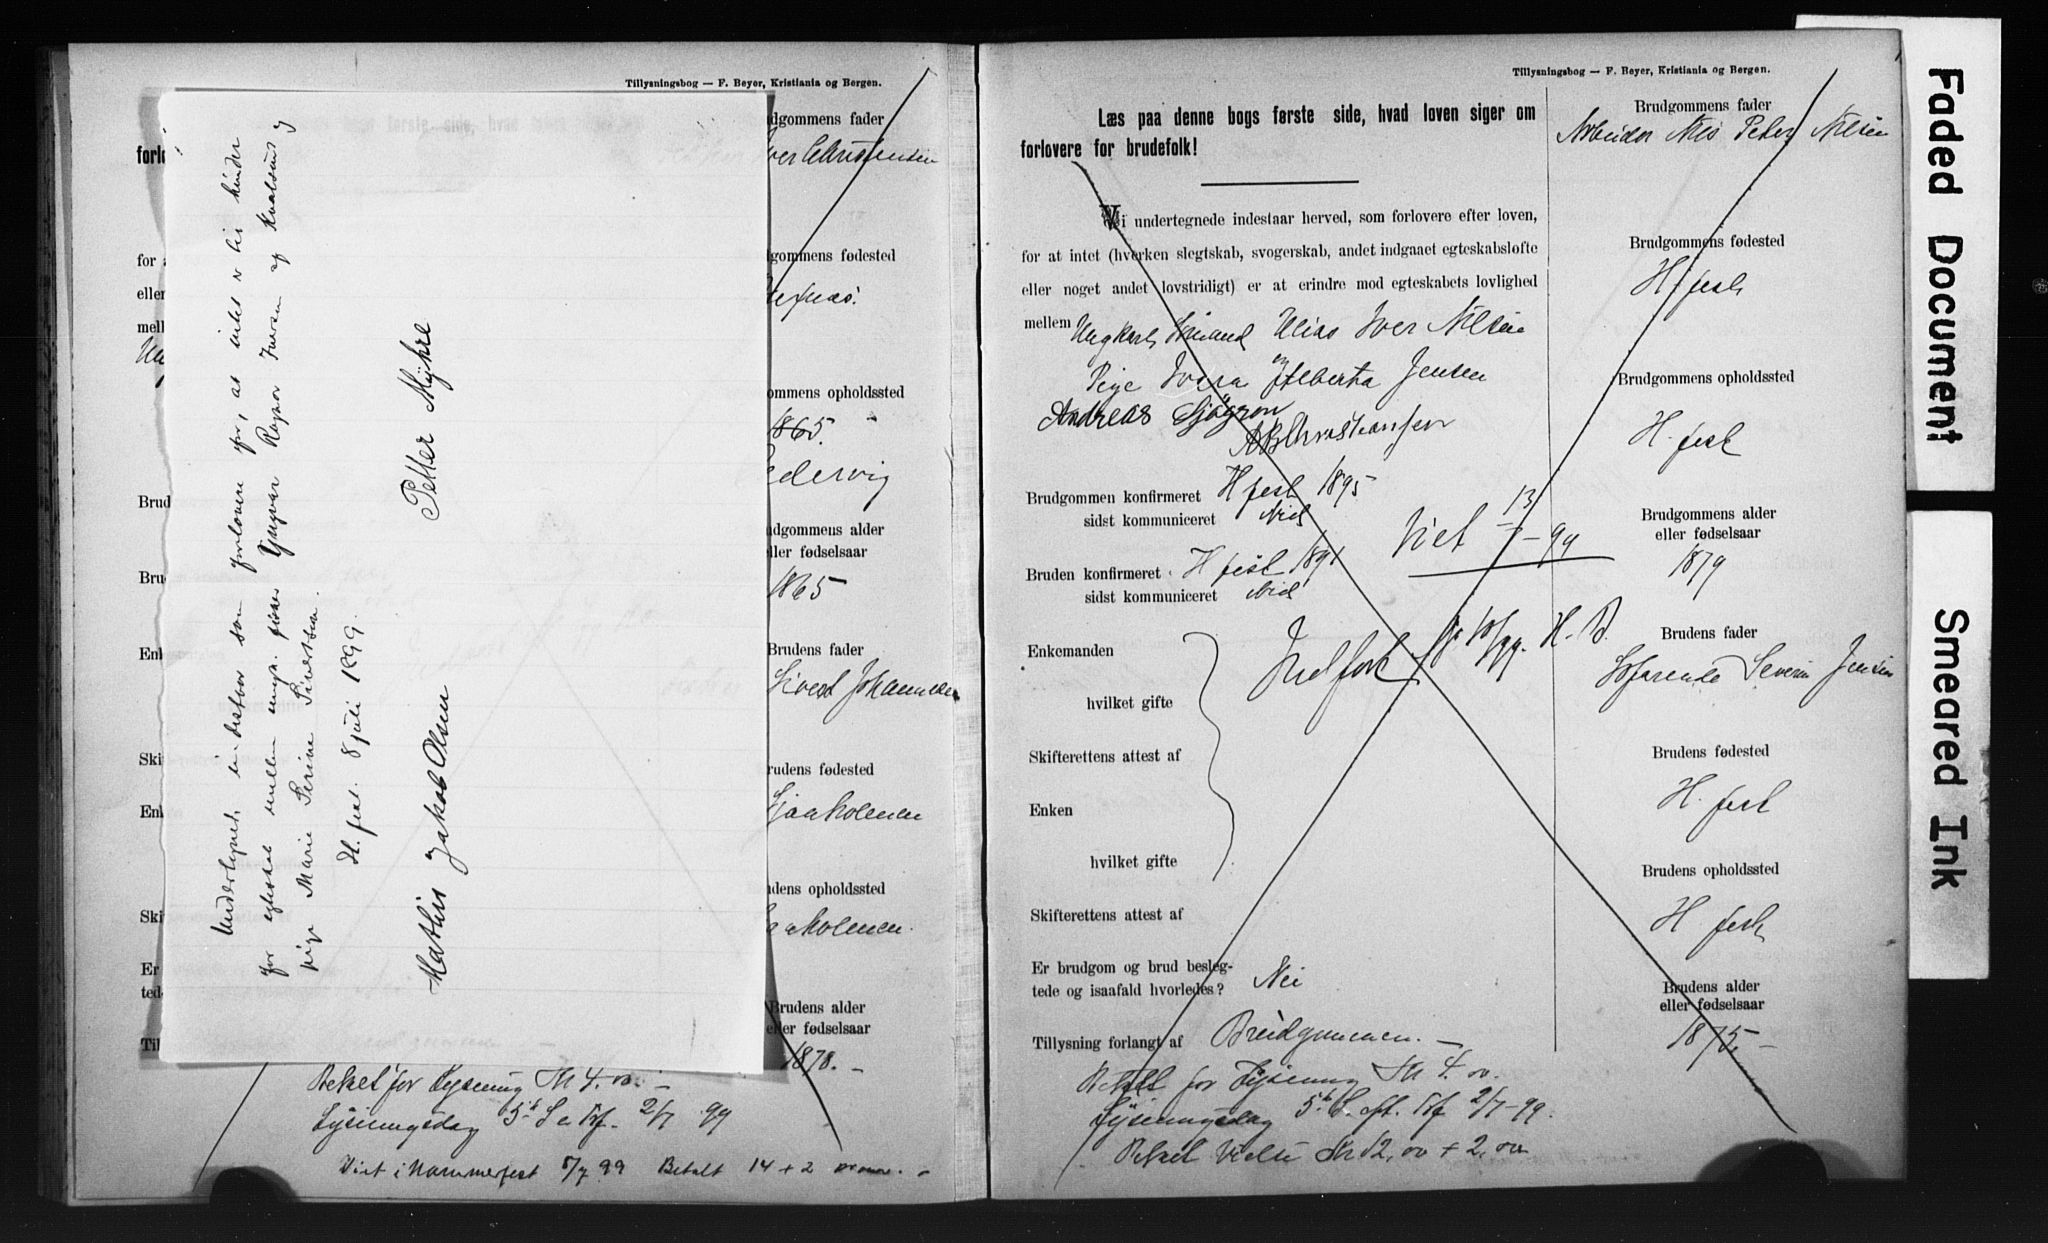 Tillysningsbog — F. Beyer, Kristiania og Bergen.
forlo
dgommens fader
Iver Christensen
for a
eller
mell
gommens fødested
ommens opholdssted
1865.
Brud
dgommens alder
ller fødselsaar
Bru
1865
Enk
Brudens fader
Sivert Johannesen
Ski
rudens fødested
Enk
Sjaaholmen
Ski
dens opholdssted
aaholmen.
Er
tede
Brudens alder
eller fødselsaar
Til
1878. —
Betalt for Lysning Kr 4. oo. —
Lysningsdag 5te S e Trf. 2/7 99
Viet i Hammerfest 8/7 99 Betalt 14 + 2 kroner. —
Undertegnede indestaar som forlovere for, at intet er til hinder
for egteskab mellem ungk. fisker Yngvar Iversen af Kvalsund og
pige Marie Serine Sivertsen.
H.fest. 8 juli 1899.
Mathis Jakob Olsen Petter Myhre
Tillysningsbog — F. Beyer, Kristiania og Bergen.
Læs paa denne bogs første side, hvad loven siger om
forlovere for brudefolk!
Vi undertegnede indestaar herved, som forlovere efter loven,
for at intet (hverken slegtskab, svogerskab, andet indgaaet egteskabsløfte
eller noget andet lovstridigt) er at erindre mod egteskabets lovlighed
mellem Ungkarl Elias Iver Nilsen
og
Pige Alberta Jensen
Andreas Sjøgren
Christiansen
Brudgommen konfirmeret H fest 1895
sidst kommuniceret
Viet 13/7 – 99
Bruden konfirmeret H fest 1891
sidst kommuniceret
Enkemanden
H. B.
hvilket gifte
Skifterettens attest af
Enken
hvilket gifte
Skifterettens attest af
Er brudgom og brud besleg-
tede og isaafald hvorledes? Nei
Tillysning forlangt af Brudgommen. —
Betalt for Lysning Kr 4. oo.
Lysningsdag 5te S. eft. Trf 2/7 – 99.
Betalt Vielse Kr 12, oo + 2, oo
Brudgommens fader
Arbeider Nils Peter Nilsen
Brudgommens fødested
H. fest
Brudgommens opholdssted
H. fest
Brudgommens alder
eller fødselsaar
1879
Brudens fader
Søfarende Severin Jensen
Brudens fødested
H. fest
Brudens opholdssted
H fest
Brudens alder
eller fødselsaar
1875, —
Faded Document
Smeared Ink